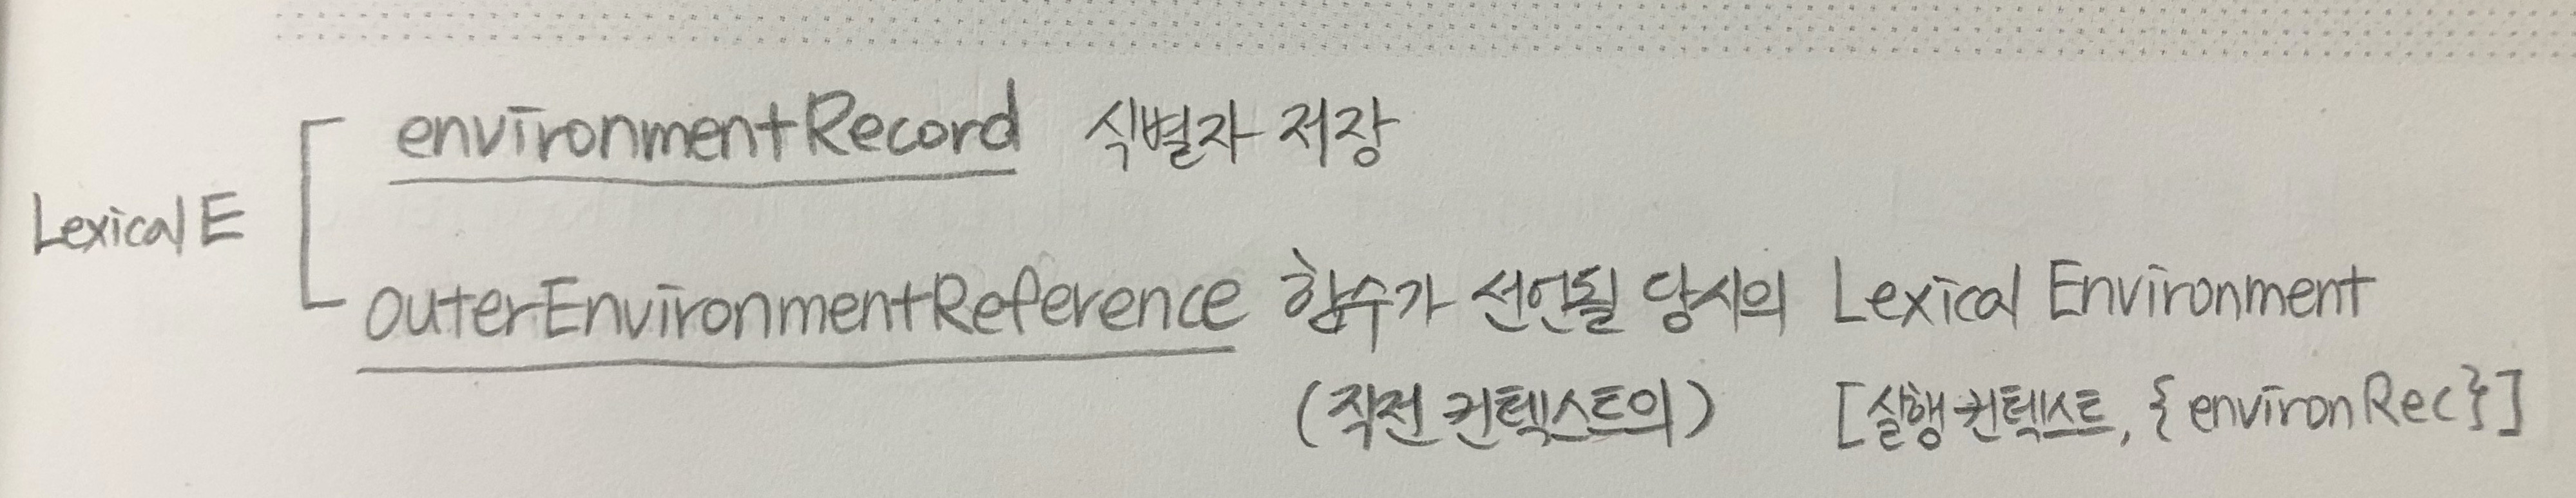 environmentRecord 식별자 저장
Lexical E
outerEnvironmentReference 함수가 선언될 당시의 Lexical Environment
(직전 컨텍스트의) [실행 컨텍스트, {environRec}]